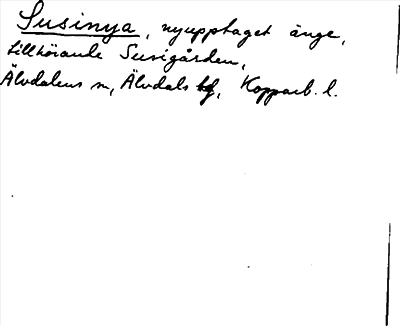 Susinya, nyupptaget änge,
tillhörande Susigården,
Älvdalens sn, Älvdals tg, Kopparb. l.